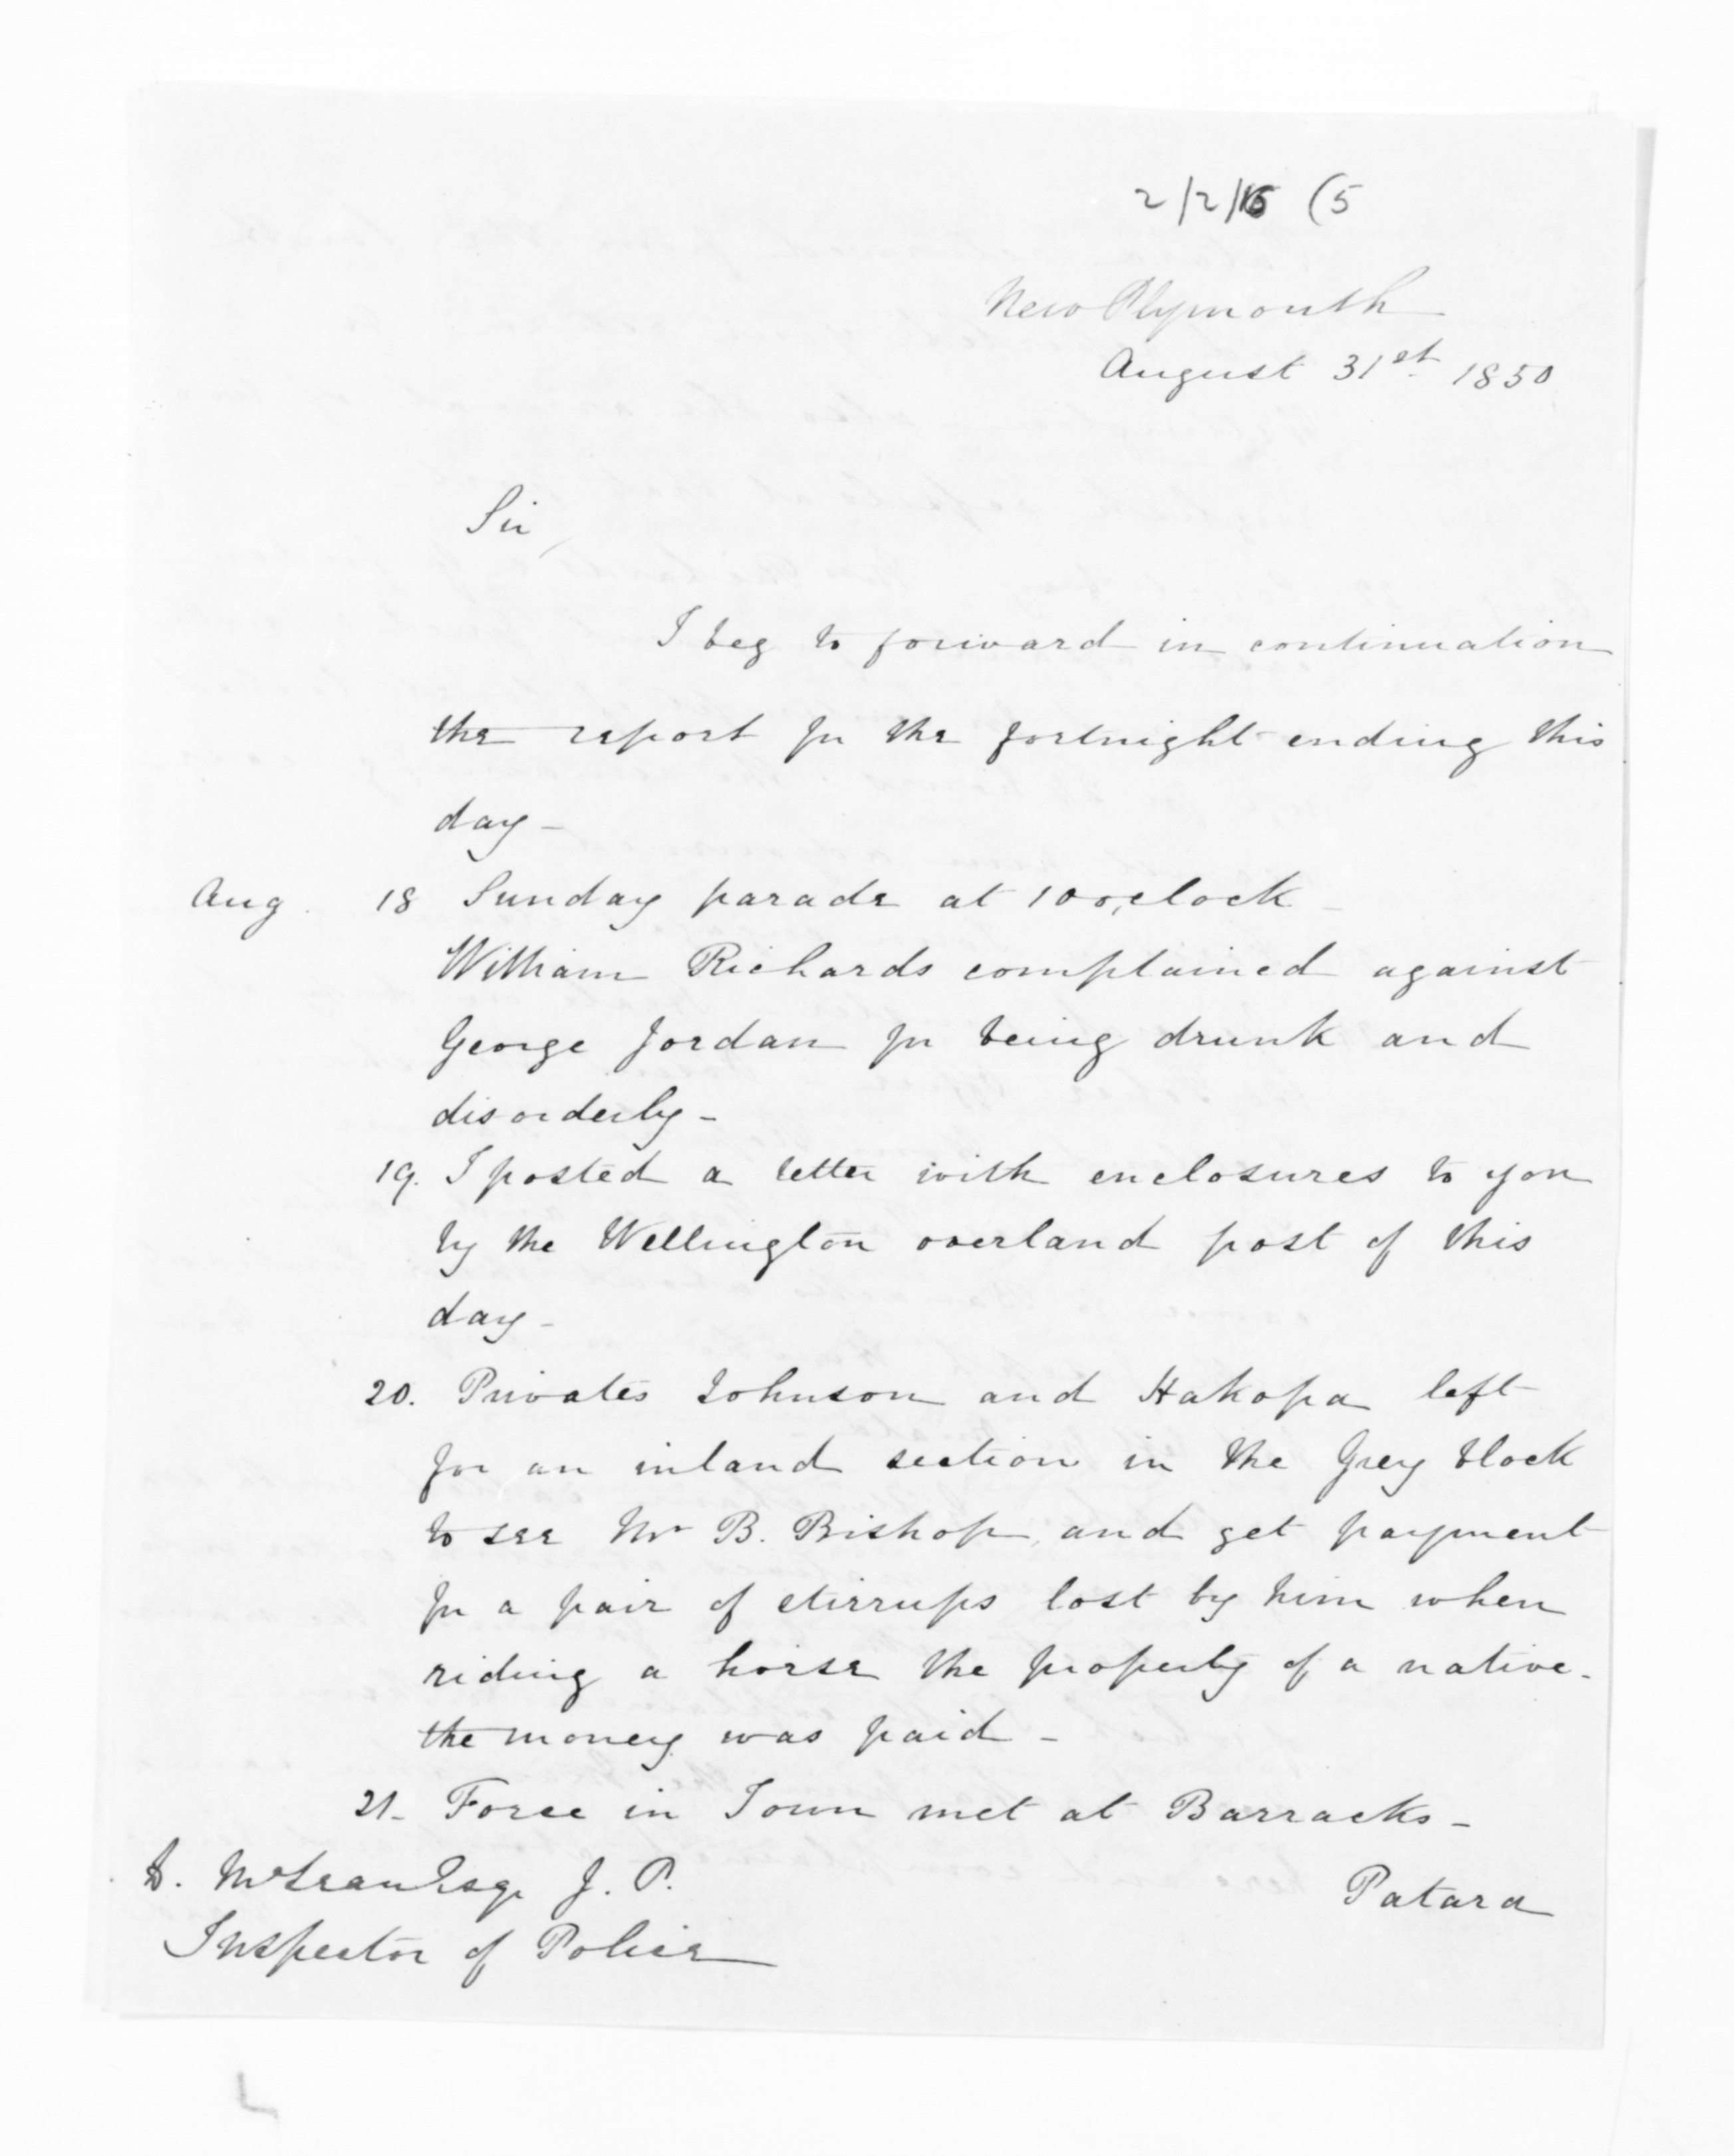 2/2/16 (5
New Plymouth
August 31st 1850
Sir,
I beg to forward in continuation
the report for the fortnight ending this
day -
Aug. 18 Sunday parade at 10 o,clock -
William Richards complained against
George Jordan for being drunk and
disorderly -
19. I posted a letter with enclosures to you
by the Wellington overland post of this
day -
20. Privates Johnson and Hakopa left
for an inland section in the Grey block
to see Mr B. Bishop, and get payment
for a pair of stirrups lost by him when
riding a horse the property of a native.
the money was paid -
21- Force in Town met at Barracks -
D. McLean Esqe J. P.
Inspector of Police
Patara